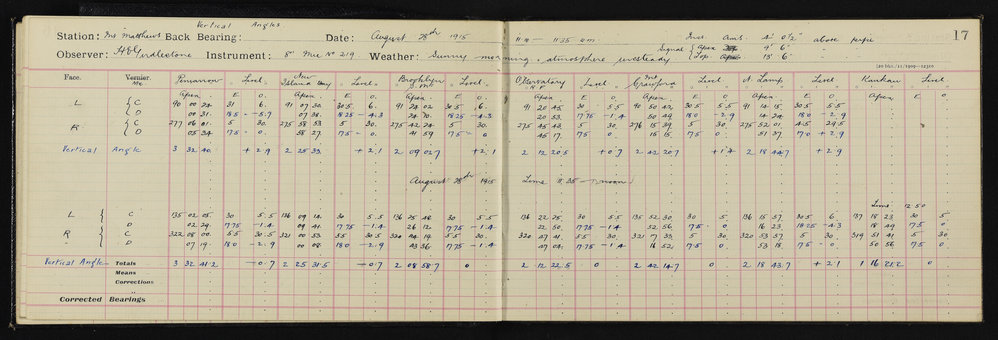 Vertical Angles
Station: Mt Matthews Back Bearing: Date: August 28th 1915 11-0 — 11-35 a.m. Inst. Amb. 4' 0½" above pipe 17
Signal { Apex 9' 6" "
Observer: H E Girdlestone Instrument: 8" Mic No 219 Weather: Sunny morning, atmosphere unsteady { Top 15' 6" "
Face. Vernier. Pencarrow Level New Island Bay Level Brooklyn Level Observatory Level Mt Crawford Level N. Lamp Level Kaukau Level
Apex. E O. Apex. E O. Apex. E O. Apex. E O. Apex. E O. Apex. E O. Apex. E O.
L { C 90 00 24 31 6. 91 07 30 30.5 6. 91 24 02 30.5 .6. 91 20 45 30 5.5 90 50 42 30.5 5.5 91 14 15 30.5 5.5
{ D 00 31 18.5 -5.7 07 38 18.25 -4.3 24 10 18.25 -4.3 20 53 17.75 -1.4 50 49 18.0 -2.9 14 24 18.0 -2.9
R { C 277 06 01 5 30. 275 58 53 5 30. 275 42 24 5 30. 275 45 43 5 30. 276 15 39 5 30. 275 52 01 4.5 29.5
{ D 05 34 17.5 0. 58 27 17.5 0. 41 59 17.5 0 45 17 17.5 0 15 15 17.5 0 51 37 17.0 +2.9
Vertical Angle 3 32 40. +2.9 2 25 33. +2.1 2 09 02.7 +2.1 2 12 20.5 +0.7 2 42 20.7 +1.4 2 18 44.7 +2.9
August 28th 1915 Time 11.35 — noon
Time 12.50
L { C 135 02 05 30 5.5 136 09 14 30 5.5 136 25 48 30 5.5 136 22 25 30 5.5 135 52 30 30 5 136 15 57 30.5 6. 137 18 23 30 5
{ D 02 29 17.75 -1.4 09 41 17.75 -1.4 26 12 17.75 -1.4 22 50 17.75 -1.4 52 56 17.5 0 16 23 18.25 -4.3 18 49 17.5 0
R { C 322 08 00 5.5 30.5 321 00 53 5.5 30.5 320 44 14 5.5 30. 320 47 41 5.5 30 321 17 33 5 30 320 53 37 5 30 319 51 41 5 30
- { D 07 19 18.0 -2.9 00 08 18.0 -2.9 43 36 17.75 -1.4 47 04 17.75 -1.4 16 52 17.5 0 53 18 17.5 0. 50 56 17.5 0
Vertical Angle Totals 3 32 41.2 -0.7 2 25 31.5 -0.7 2 08 58.7 0 2 12 22.5 0 2 42 14.7 0 2 18 43.7 +2.1 1 16 21.2 0
Means
Corrections
Corrected Bearings